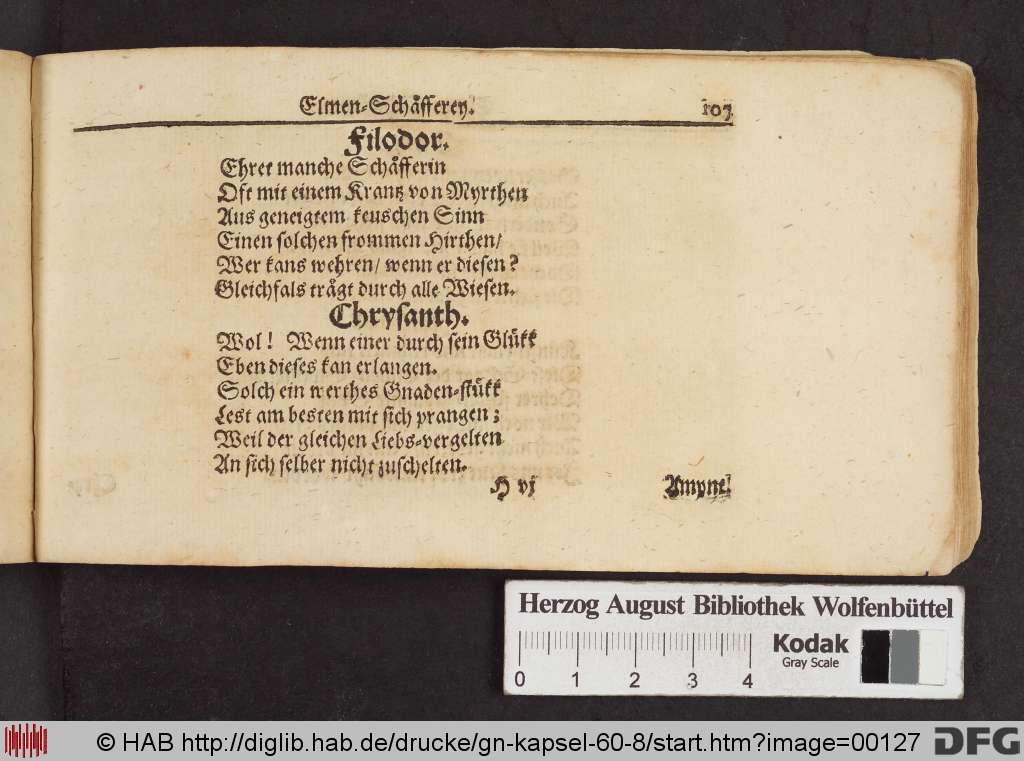 Elmen-Schåfferey. 107
Filodor.
Ehret manche Schåfferin
Oft mit einem Krantz von Myrthen
Aus geneigtem keuschen Sinn
Einen solchen frommen Hirthen/
Wer kans wehren/ wenn er diesen?
Gleichfals trågt durch alle Wiesen.
Chrysanth.
Wol! Wenn einer durch sein Glükk
Eben dieses kan erlangen.
Solch ein werthes Gnaden-stükk
Lest am besten mit sich prangen;
Weil der gleichen Liebs-vergelten
An sich selber nicht zuschelten.
H vj Amynt.
Herzog August Bibliothek Wolfenbüttel
0 1 2 3 4
Kodak
Gray Scale
© HAB http://diglib.hab.de/drucke/gn-kapsel-60-8/start.htm?image=00127 DFG